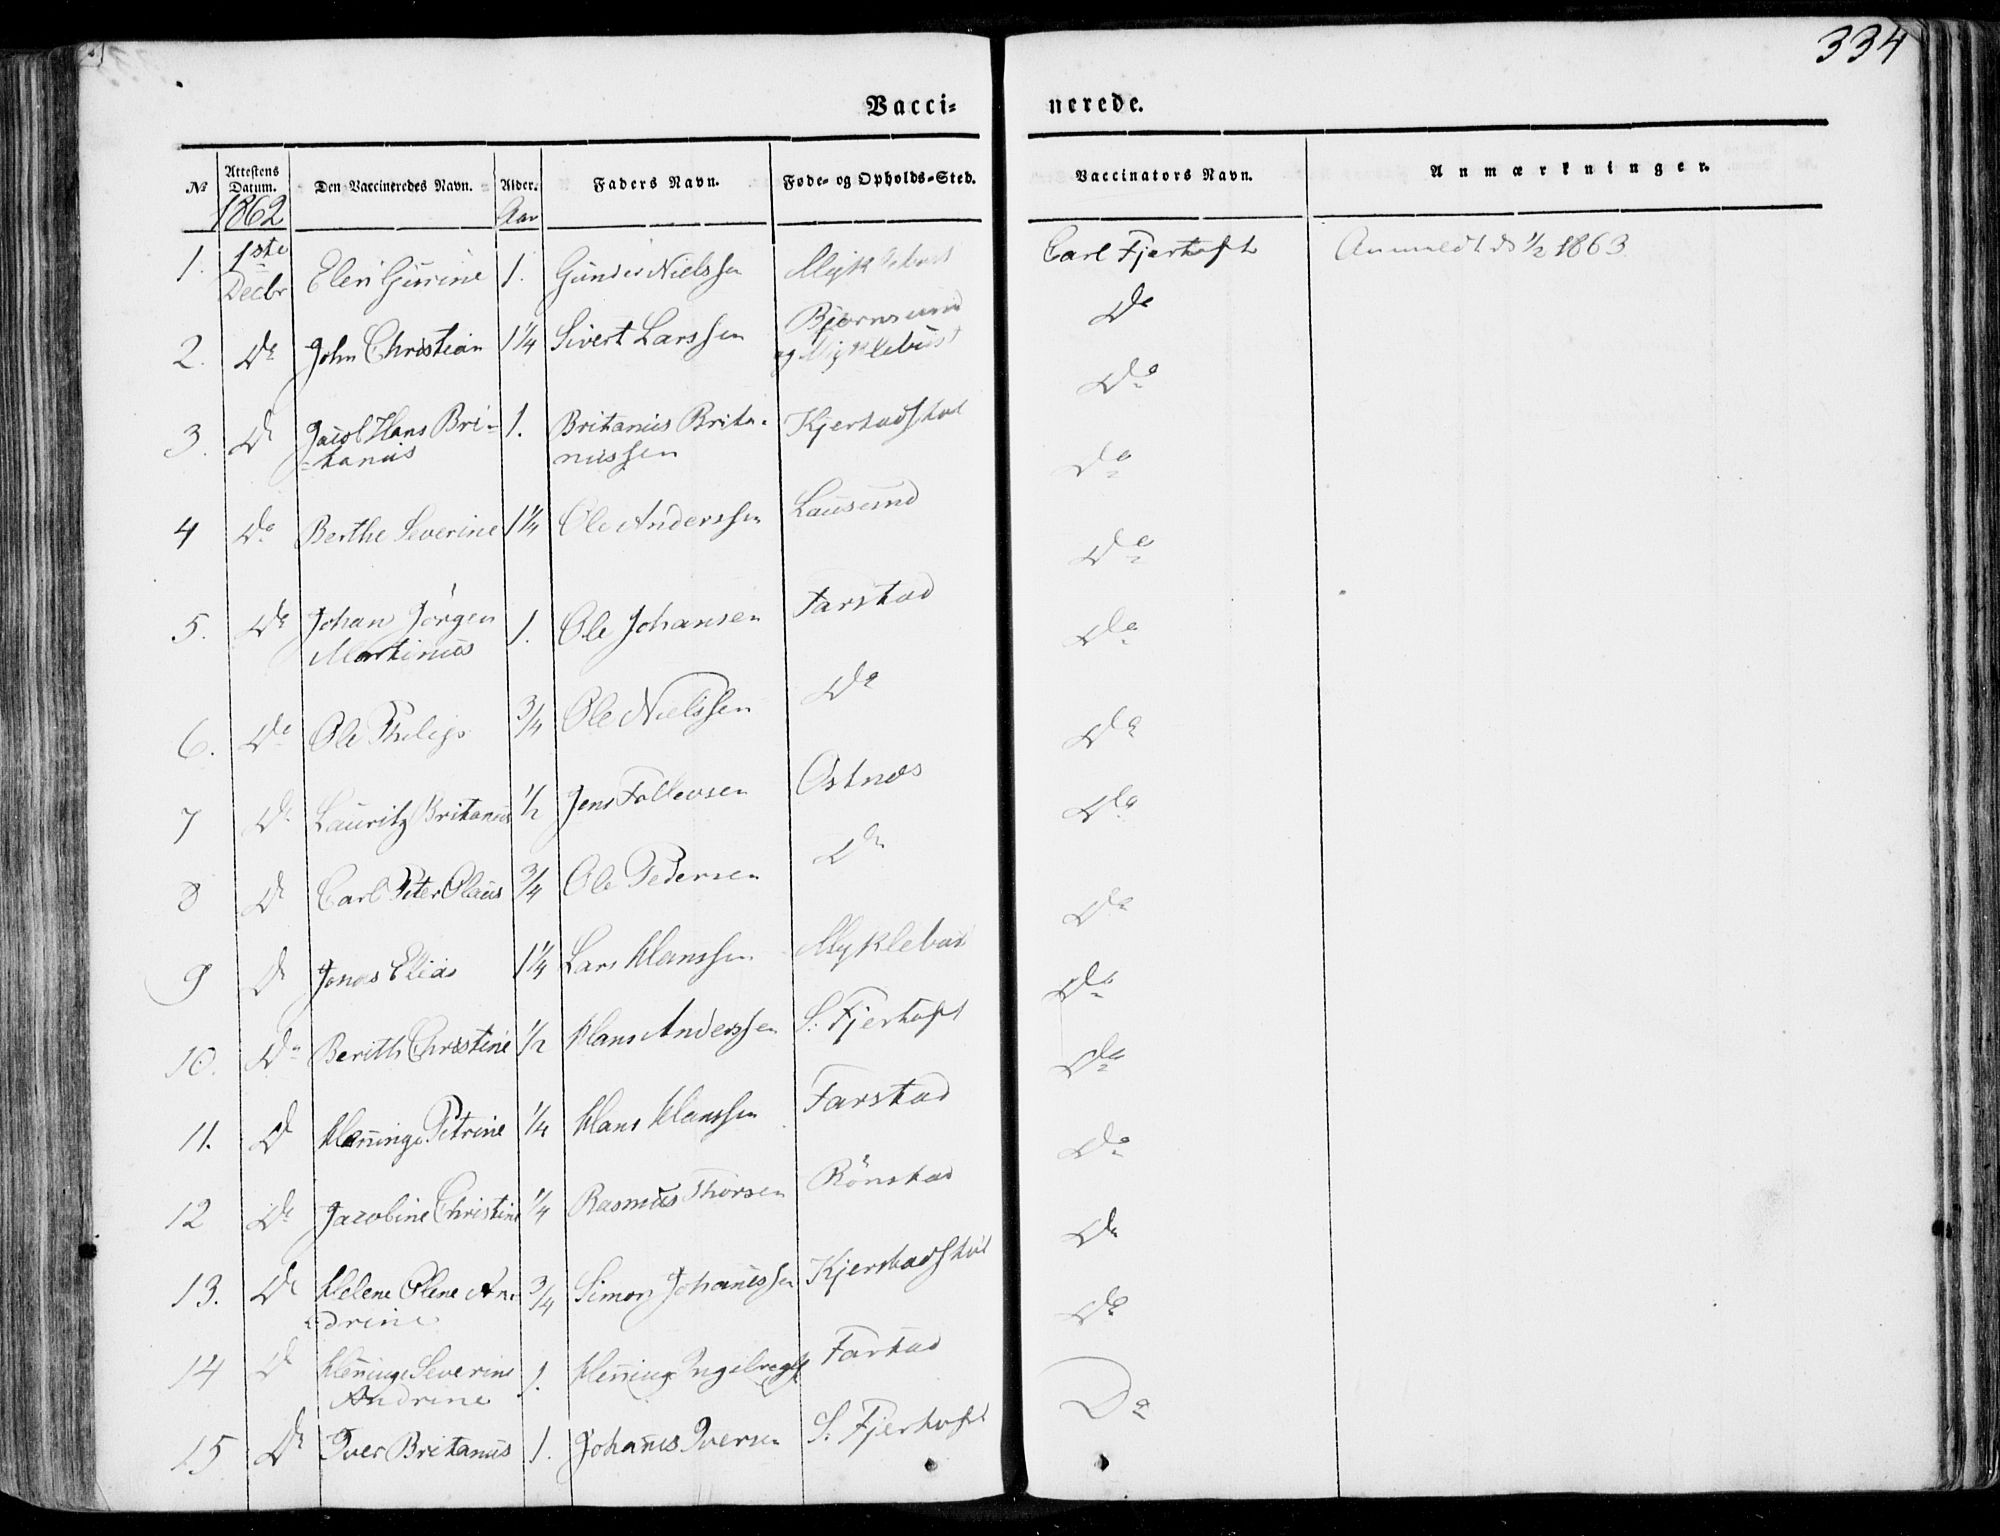 334
Vacci- nerede.
№ Attestens Datum. Den Vaccineredes Navn. Alder. Faders Navn. Føde- og Opholds-Sted. Vaccinators Navn. Anmærkninger.
1862 Aar
1. 1ste Decbr Elen Gurine 1. Gunder Nielssen Myklebust Carl Fjertoft Anmeldt d 1/2 1863.
2. Do John Christian 1 1/4 Sivert Larssen Bjørnsund og Myklebust Do
3. Do Jacob Hans Bri-
-tanus 1. Britanius Brita-
nussen Kjerstadstad Do
4 Do Berthe Severine 1 1/4 Ole Anderssen Lausund Do
5. Do Johan Jørgen
Martinus 1. Ole Johansen Farstad Do
6. Do Ole Philip 3/4 Ole Nielssen Do Do
7 Do Lauritz Britanus 1/2 Jens Tollevsen Ostnes Do
8 Do Carl Peter Olaus 3/4 Ole Pedersen Do Do
9 Do Jonas Elias 1 1/4 Lars Hanssen Myklebust Do
10. Do Berith Christine 1/2 Hans Anderssen S. Fjertoft Do
11. Do Henninge Petrine 1/4 Hans Hanssen Farstad Do
12 Do Jacobine Christine 1/4 Rasmus Thorsen Rönstad Do
13. Do Helene Oline An-
-drine 3/4 Simon Johanessen Kjerstadstad Do
14 Do Henninge Severine
Andrine 1. Henning Farstad Do
15 Do Iver Britanus 1. Johanes Iversen S. Fjertoft Do